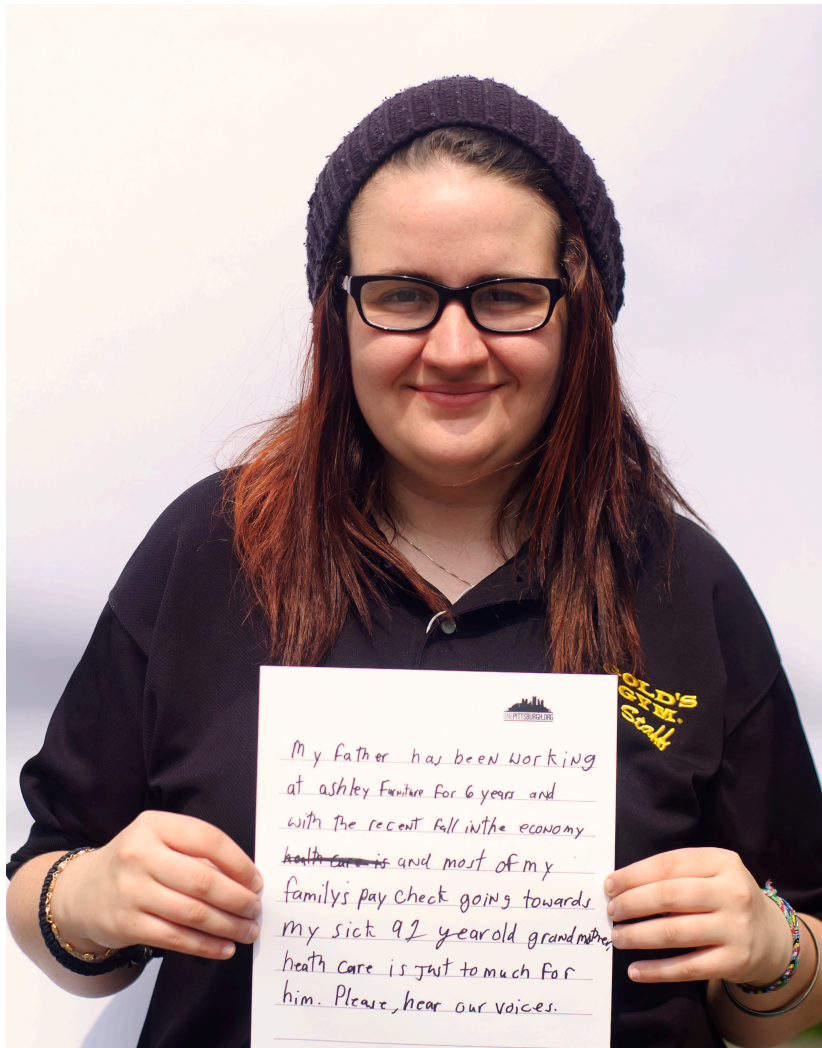 ONEPITTSBURGH.ORG
My father has been working
at ashley Furniture for 6 years and
with the recent fall in the economy
health care is and most of my
family's pay check going towards
my sick 92 year old grandmother,
heath care is just to much for
him. Please, hear our voices.
GOLD'S
GYM.
Staff